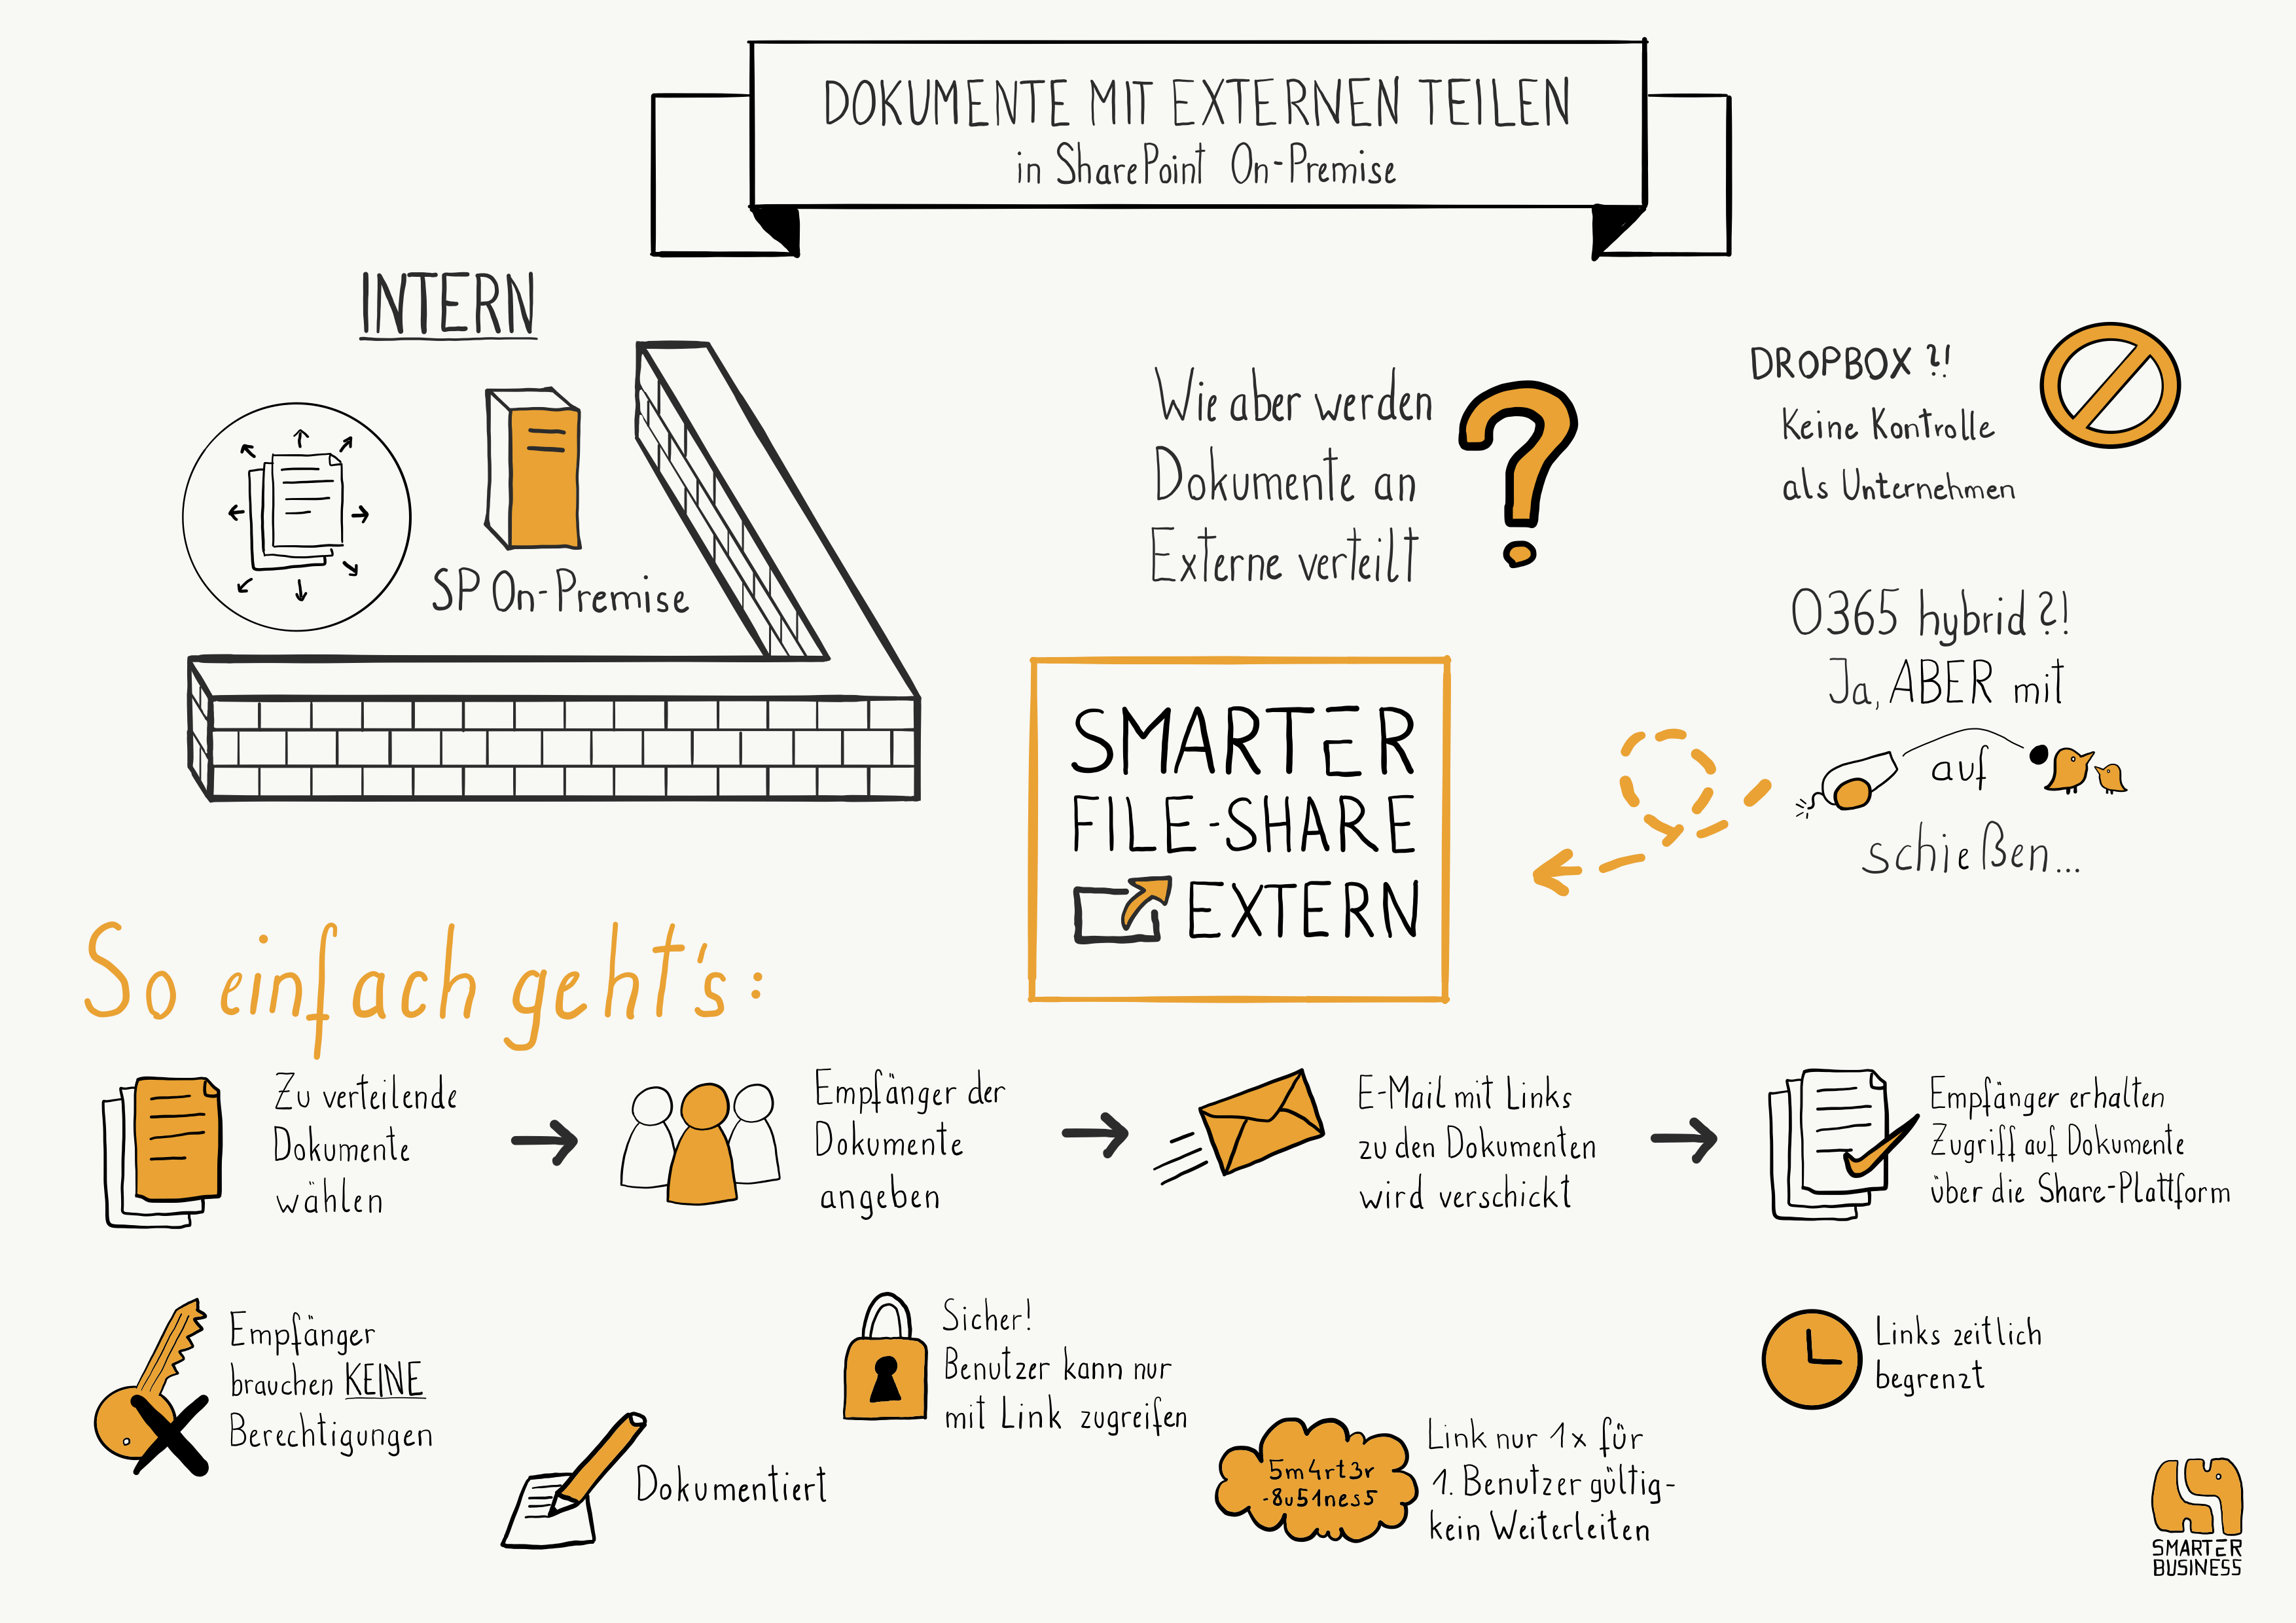 DOKUMENTE MIT EXTERNEN TEILEN
in SharePoint On-Premise
INTERN
SP On-Premise
Wie aber werden
Dokumente an
Externe verteilt
?
DROPBOX ?!
Keine Kontrolle
als Unternehmen
O365 hybrid ?!
Ja, ABER mit
auf
schießen...
SMARTER
FILE-SHARE
EXTERN
So einfach geht's:
Zu verteilende
Dokumente
wählen
Empfänger der
Dokumente
angeben
E-Mail mit Links
zu den Dokumenten
wird verschickt
Empfänger erhalten
Zugriff auf Dokumente
über die Share-Plattform
Empfänger
brauchen KEINE
Berechtigungen
Dokumentiert
Sicher!
Benutzer kann nur
mit Link zugreifen
5m4rt3r
-8u51ness
Link nur 1x für
1. Benutzer gültig-
kein Weiterleiten
Links zeitlich
begrenzt
SMARTER
BUSINESS